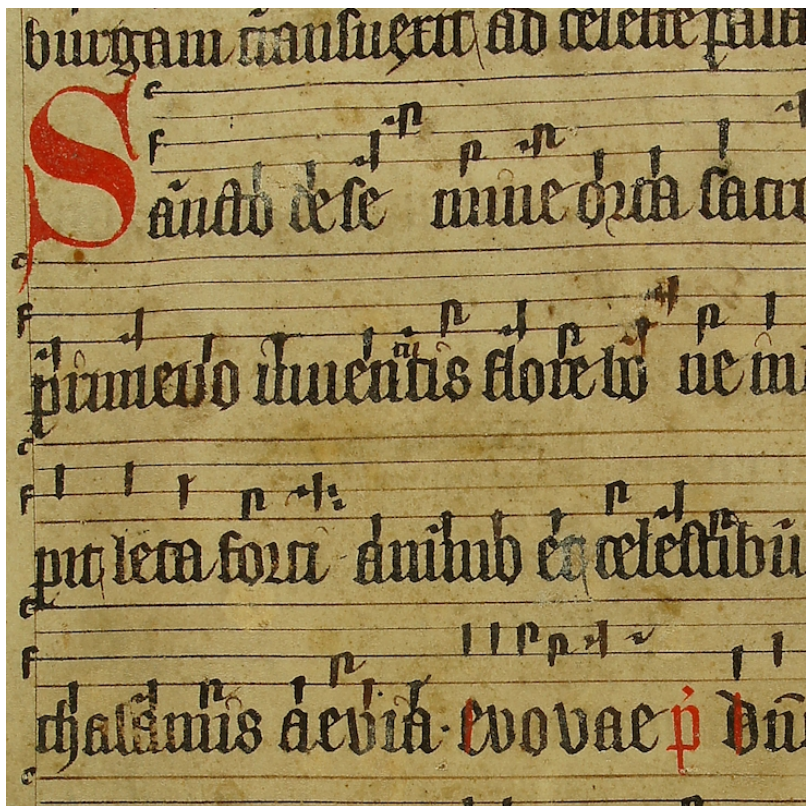 burgam transuexit ad celeste pala
Sancto de semine orta sacra
primevo iuuentutis flore bo ne in
pit leta forti animo et celestibu
thalamis aevia evovae p̄ Dn̄